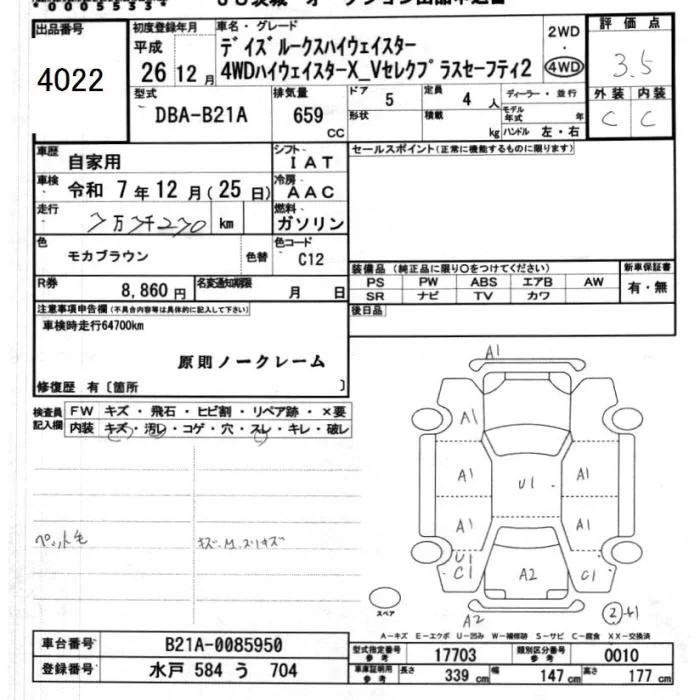 出品番号
4022
初度登録年月
平成
26 12 月
車名・グレード
デイズルークスハイウェイスター
4WDハイウェイスターX_Vセレクプラスセーフティ2
2WD
・
4WD
評価点
3.5
外装 内装
C C
型式
DBA-B21A
排気量
659
CC
ドア
5
定員
4 人
形状
積載
kg
ディーラー・並行
モデル年式 年
ハンドル 左・右
車歴
自家用
シフト
IAT
車検
令和 7 年 12 月 (25 日)
冷房
AAC
走行
7万4270 km
燃料
ガソリン
色
モカブラウン
色替
色コード
C12
R券
8,860 円
名変通知期限
月 日
セールスポイント(正常に機能するものに限ります)
装備品 (純正品に限り○をつけてください)
PS PW ABS エアB AW
SR ナビ TV カワ
新車保証書
有・無
後日品
注意事項申告欄(不具合内容等は具体的に記入して下さい)
車検時走行64700km
原則ノークレーム
修復歴 有〔箇所 〕
検査員記入欄
FW キズ・飛石・ヒビ割・リペア跡・×要
内装 キズ・汚レ・コゲ・穴・スレ・キレ・破レ
ペット毛
キズ・M.スリキズ
A1
A1
A1 U1 A1
A1 A1
U1
C1 A2 C1
A2
スペア
A-キズ E-エクボ U-凹み W-補修跡 S-サビ C-腐食 XX-交換済
車台番号
B21A-0085950
登録番号
水戸 584 う 704
型式指定番号
参考
17703
類別区分番号
参考
0010
車庫証明用
参考
長さ 339 cm 幅 147 cm 高さ 177 cm